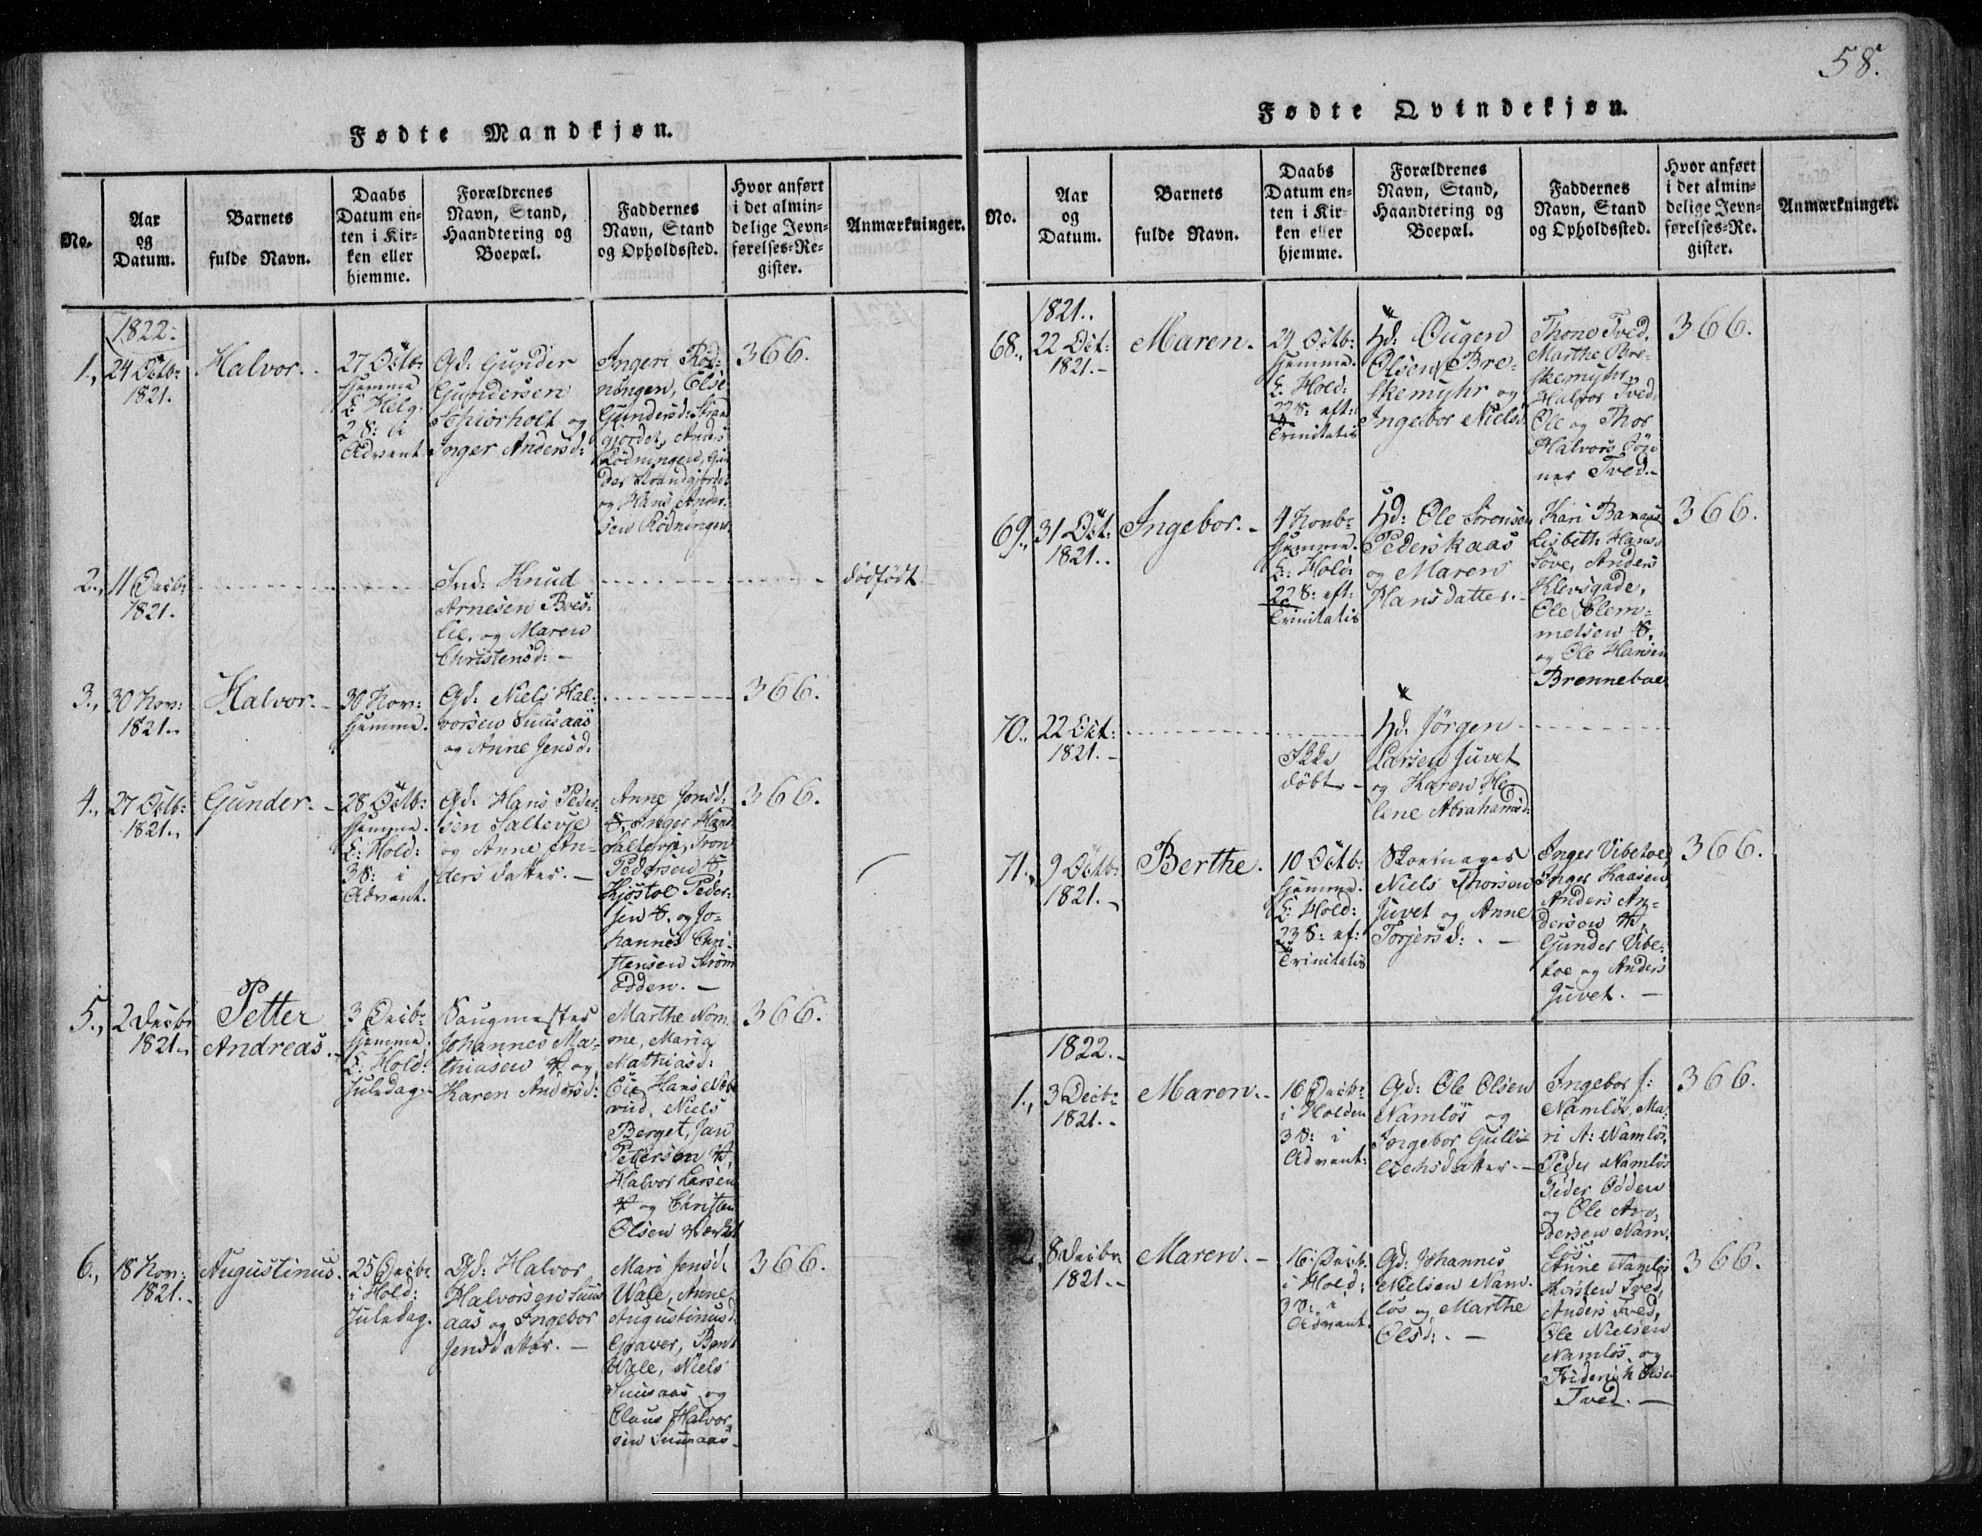 58.
Fødte Mandkjøn.
No.
Aar
og
Datum.
Barnets
fulde Navn.
Daabs
Datum en-
ten i Kir-
ken eller
hjemme.
Forældrenes
Navn, Stand,
Haandtering og
Boepæl.
Faddernes
Navn, Stand
og Opholdssted.
Hvor anført
i det almin-
delige Jevn-
førelses-Re-
gister.
Anmærkninger.
1822.
1., 24 Octb:
1821.
Halvor.
27 Octb:
hjemme
2 S: i
Advent
Gd: Gunder
Gundersen
og
Inger Andersd:
Ingeri Röd-
ningen, Else
Gundersd: Strand
gjordet, Anders
Rödningen, Gun
der Strandgjordet
og Hans Ander-
sen Rödningen
366.
2., 11 Decb:
1821.
Ind: Knud
Arnesen Bres-
lie, og Maren
Christensd: –
dödfödt
3., 30 Nov:
1821.
Halvor.
30 Nov:
hjemme.
Gd: Niels Hal-
vorsen Suusaas
og Anne Jensd:
366.
4., 27 Octb:
1821.
Gunder.
28 Octb:
hjemme.
E: Hold:
3 S: i
Advent.
Gd: Hans Peder-
sen Saltevje
og Anne An-
ders datter. –
Anne Jonsd:
Inger Hans
Saltevje, Tron
Pedersen
Kjöstol Peder-
sen S. og Jo-
hannes Chri-
stensen Ström
Odden. –
366.
5., 2 Decbr
1821.
Petter
Andreas.
3 Decb:
hjemme.
E: Hold:
Juledag.
Saugmester
Johannes Ma-
thiasen og
Karen Andersd:
Marthe Nom-
me, Maria
Mathiasd:
Hans
rud, Niels
Berget, Jan
Petersen
Halvor Larsen
og Christen
Olsen
366.
6., 18 Nov:
1821.
Augustinus.
25 Decb:
i Hold:
Juledag.
Gd: Halvor
Halvorsen Suus
aas og Ingebor
Jensdatter. –
Mari Jensd:
Wale, Anne
Augustinusd:
Graver, Bent
Wale, Niels
Suusaas og
Claus Halvor-
sen Suusaas
366.
Fødte Qvindekjøn.
No.
Aar
og
Datum.
Barnets
fulde Navn.
Daabs
Datum en-
ten i Kir-
ken eller
hjemme.
Forældrenes
Navn, Stand,
Haandtering og
Boepæl.
Faddernes
Navn, Stand
og Opholdssted.
Hvor anført
i det almin-
delige Jevn-
førelses-Re-
gister.
Anmærkninger.
1821.
68., 22 Oct:
1821. –
Maren.
24 Octb:
hjemme.
E: Hold:
22 S: eft:
Trinitatis
Hd: Ougen
Olsen Bre-
skemyhr og
Ingebor Nielsd:
Thone Tved,
Marthe Bre-
skemyhr,
Halvor Tved,
Ole og Thor
Halvors Søn
ner Tved. –
366.
69., 31 Oct:
1821.
Ingebor. –
4 Novb:
hjemme.
E: Hold:
22 S: eft:
Trinitatis
Hd: Ole Sörensen
Pederskaas
og Maren
Hansdatter. –
Kari
Lisbeth Hans
Löve, Anders
Klevsgade,
Ole Clem-
metsen S.
og Ole Hansen
Brenneboe
366.
70., 22 Oct:
1821. –
Ikke
döbt. –
Hd: Jörgen
Larsen Juvet
og Karen He-
lene Abrahamsd:
71., 9 Octb:
1821. –
Berthe.
10 Octb:
hjemme.
E: Hold:
23 S: ef:
Trinitatis
Skoemager
Niels Thorsen
Juvet og Anne
Torjersd: . –
Inger Vibetoe,
Inger Kaasen,
Anders An-
dersen
Gunder Vibe-
toe og Anders
Juvet. –
366.
1822. –
1., 3 Decb:
1821. –
Maren. –
16 Decb:
i Holden
3 S: i
Advent:
Gd: Ole Olsen
Namlös og
Ingebor Gulli
chsdatter. –
Ingebor J:
Namlös, Ma-
ri A: Namlös,
Peder Namlös
Peder Odden
og Ole An-
dersen Nam-
lös
366.
2., 8 Decbr
1821. –
Maren. –
16 Decb:
i Hold:
3 S: i
Advent.
Gd: Johannes
Nielsen Nam-
lös og Marthe
Olsd: . –
Anne Namlös
Torsten Tved,
Anders Tved,
Ole Nielsen
Namlös og
Friderich Olsen
Tved. –
366.